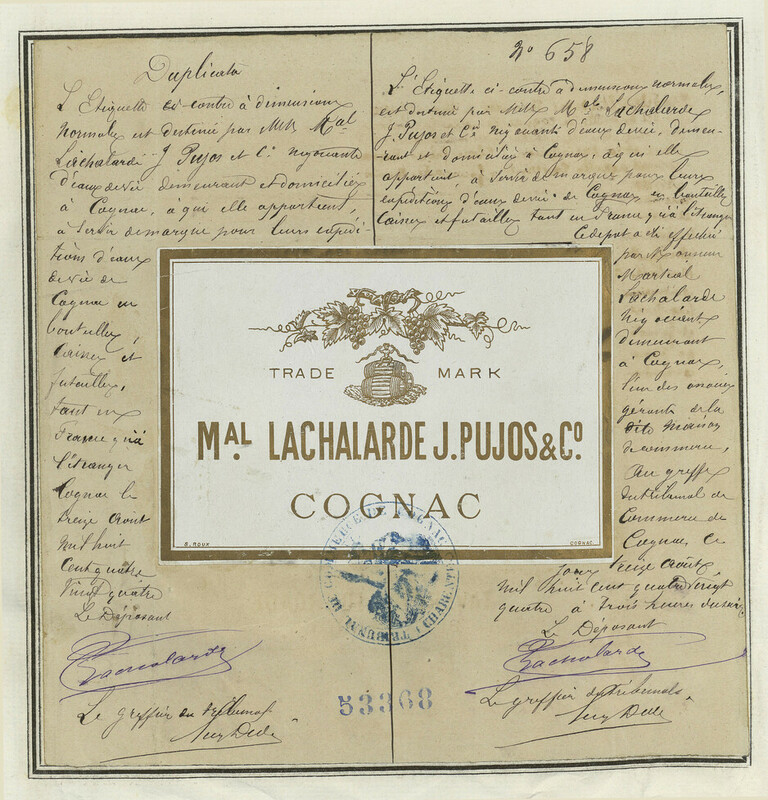 Duplicata
L'Etiquette ci-contre à dimensions
normales est destinée par MM. Mal
Lachalarde J. Pujos et Cie négociants
d'eaux de vie demeurant et domiciliés
à Cognac, à qui elle appartient,
à servir de marque pour leurs expédi-
tions d'eaux
de vie de
Cognac en
bouteilles,
caisses et
futailles,
tant en
France qu'à
l'étranger
Cognac le
treize Août
mil huit
cent quatre
vingt quatre
Le Déposant
Lachalarde
Le greffier du Tribunal
No 658
L'Etiquette ci-contre à dimensions normales,
est destinée par MM. Mal Lachalarde
J. Pujos et Cie négociants d'eaux de vie, demeu-
rant et domiciliés à Cognac, à qui elle
appartient, à servir de marque pour leurs
expéditions d'eaux de vie de Cognac en bouteilles
caisses et futailles tant en France qu'à l'étranger
Ce dépôt a été effectué
par Monsieur
Martial
Lachalarde
négociant
demeurant
à Cognac,
l'un des
gérants de la
dite Maison
de commerce,
Au greffe
du tribunal de
Commerce de
Cognac, ce
jour treize Août,
mil huit cent quatre vingt
quatre à trois heures du soir
Le Déposant
Lachalarde
Le greffier du Tribunal
TRADE MARK
MAL. LACHALARDE J. PUJOS & CO.
COGNAC
B. ROUX COGNAC
TRIBUNAL DE COMMERCE DE COGNAC (CHARENTE)
53368